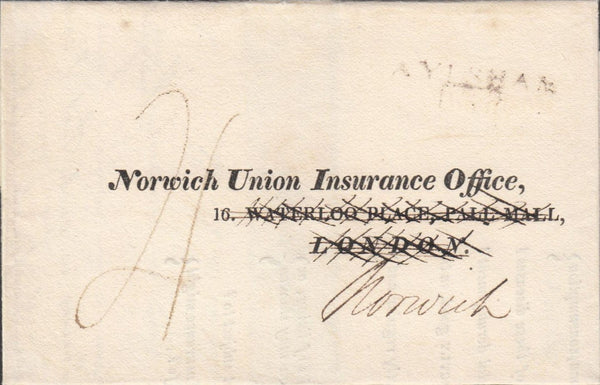 AYLSHAM
4
Norwich Union Insurance Office,
10. WATERLOO PLACE, PALL MALL,
LONDON.
Norwich